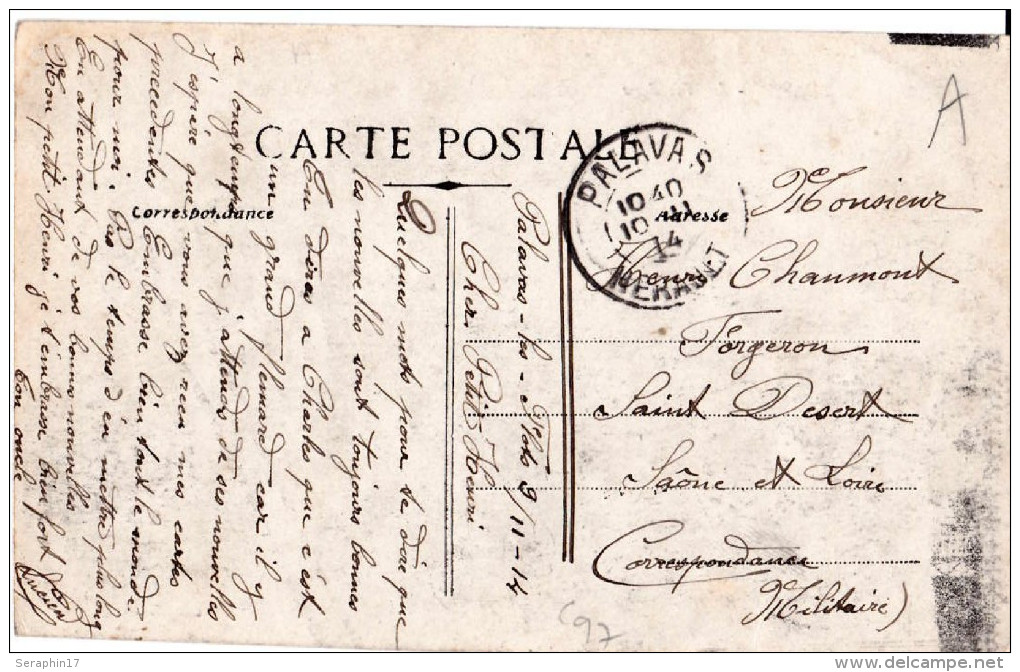 CARTE POSTALE
Correspondance
Adresse
PALAVAS
1040
10-11
14
HERAULT
A
Monsieur
Henri Chaumont
Forgeron
Saint Desert
Saône et Loire
Correspondance
Militaire)
Palavas-les-Flots 9/11-14
Cher Petit Henri
Quelques mots pour te dire que
les nouvelles sont toujours bonnes
tu diras a Charles que c'est
un grand flemard car il y
a longtemps que j'attends de ses nouvelles
J'espère que vous avez recu mes cartes
precedentes Embrasse bien tout le monde
pour moi. Pas le temps d'en mettre plus long
En attendant de vos bonnes nouvelles
Mon petit Henri je t'embrasse bien fort
Ton oncle
97
Seraphin17
delcampe.net